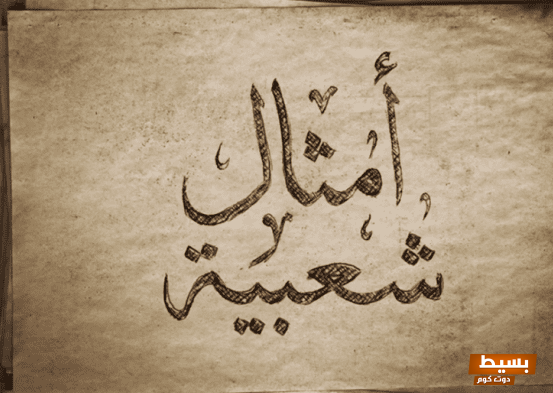 أمثال
شعبية
بسيط
دوت كوم